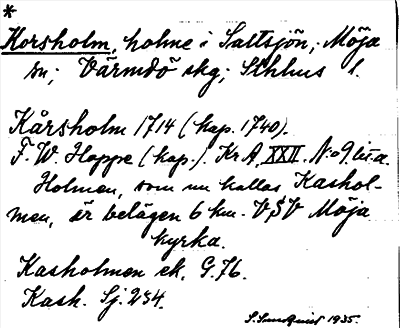 *
Korsholm, holme i Saltsjön, Möja
sn; Värmdö skg; Sthlms l.
Kårsholm 1714 (kop. 1740).
F. W. Hoppe (kop.). Kr A, XXII. N:o 9. lit. a.
Holmen, som nu kallas Kashol-
men, är belägen 6 km. VSV Möja
kyrka.
Kasholmen ek. G. 76.
Kash. Sj. 234.
S. Sundquist 1935.